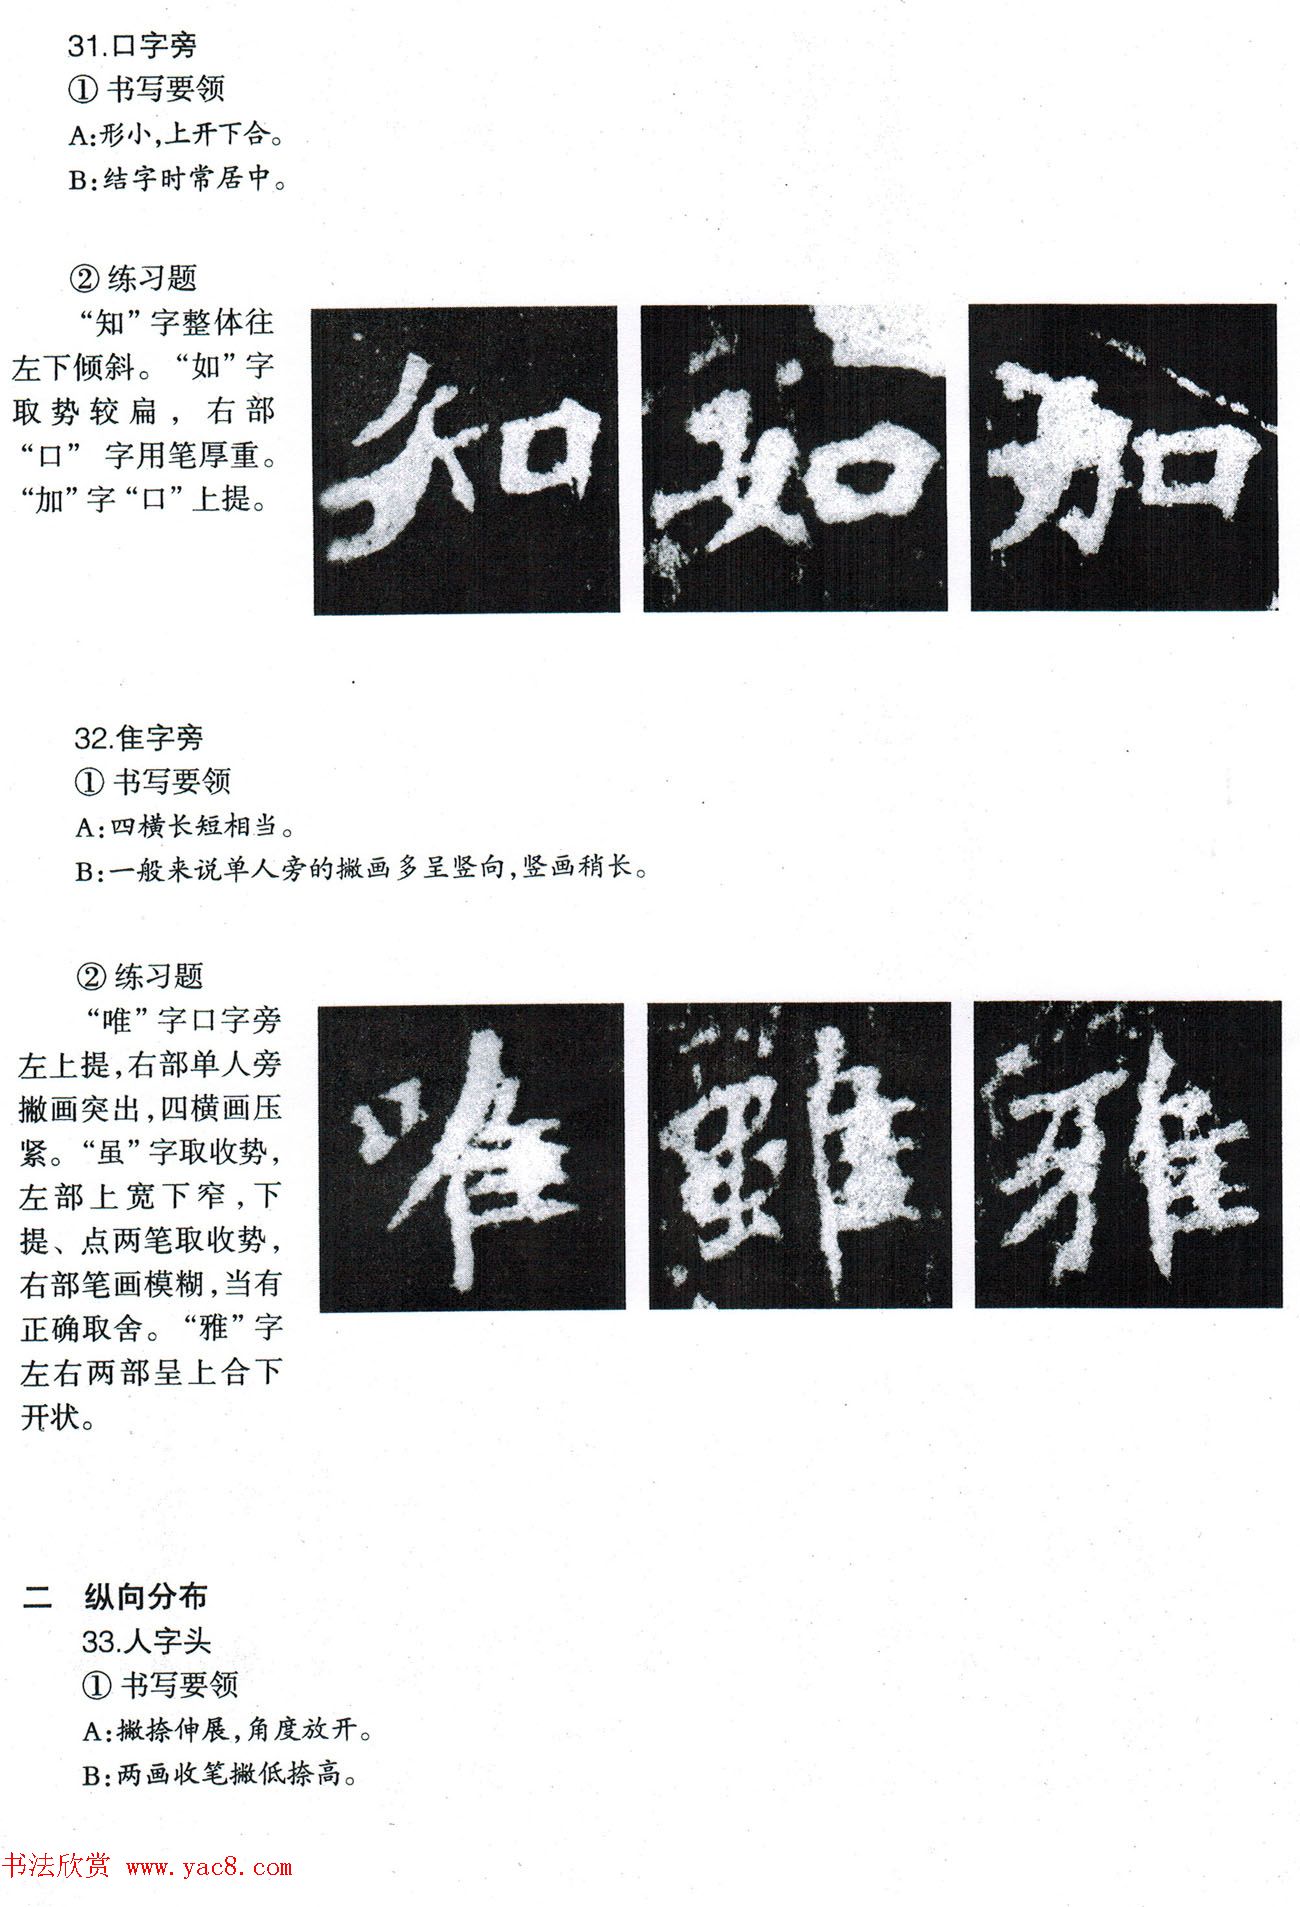 31.口字旁
① 书写要领
A:形小,上开下合。
B:结字时常居中。
② 练习题
“知”字整体往
左下倾斜。“如”字
取势较扁，右部
“口” 字用笔厚重。
“加”字“口”上提。
知 如 加
32.隹字旁
① 书写要领
A:四横长短相当。
B:一般来说单人旁的撇画多呈竖向,竖画稍长。
② 练习题
“唯”字口字旁
左上提,右部单人旁
撇画突出,四横画压
紧。“虽”字取收势,
左部上宽下窄,下
提、点两笔取收势,
右部笔画模糊,当有
正确取舍。“雅”字
左右两部呈上合下
开状。
唯 雖 雅
二 纵向分布
33.人字头
① 书写要领
A:撇捺伸展,角度放开。
B:两画收笔撇低捺高。
书法欣赏 www.yac8.com